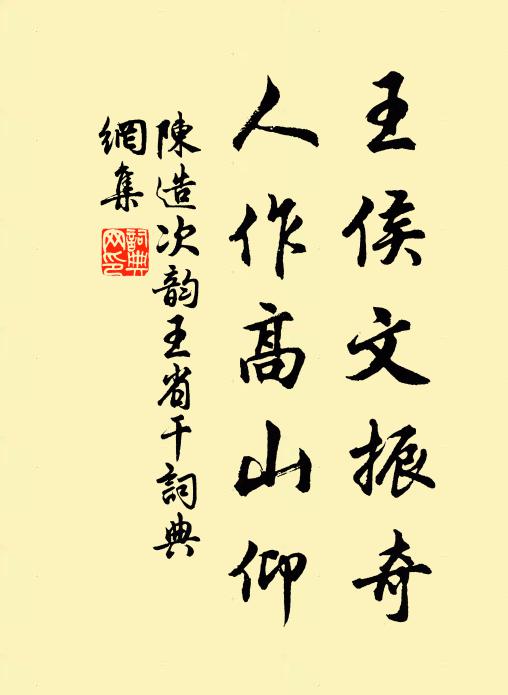 王侯文振奇
人作高山仰
陳造次韵王省干詞典
網集
詞典
网印